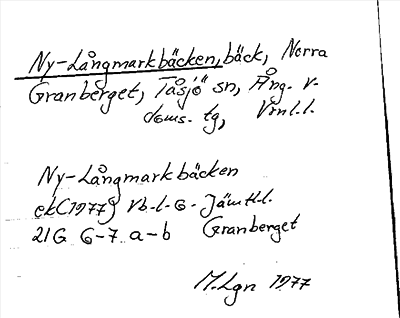 Ny-Långmarkbäcken, bäck, Norra
Granberget, Tåsjö sn, Ång. v.
doms. tg, Vrnl.l.
Ny-Långmarkbäcken
ek(1977) Vb.l.o. Jämtl.l.
21G 6-7 a-b Granberget
M.Lgn 1977